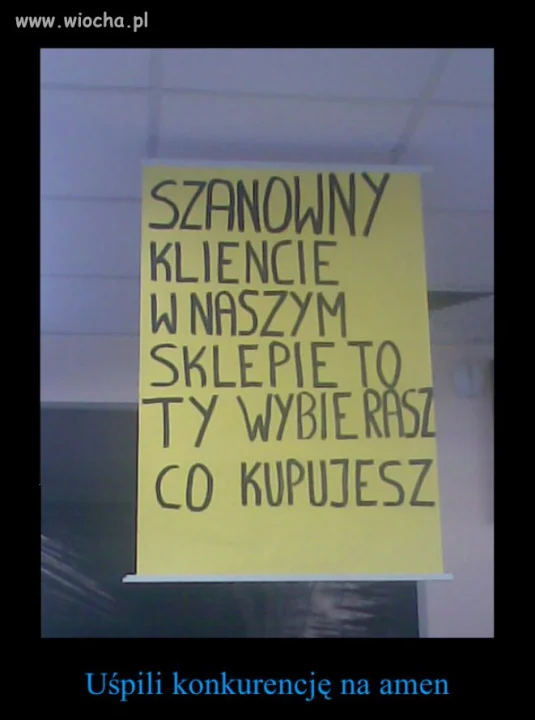 www.wiocha.pl
SZANOWNY
KLIENCIE
W NASZYM
SKLEPIE TO
TY WYBIERASZ
CO KUPUJESZ
Uśpili konkurencję na amen